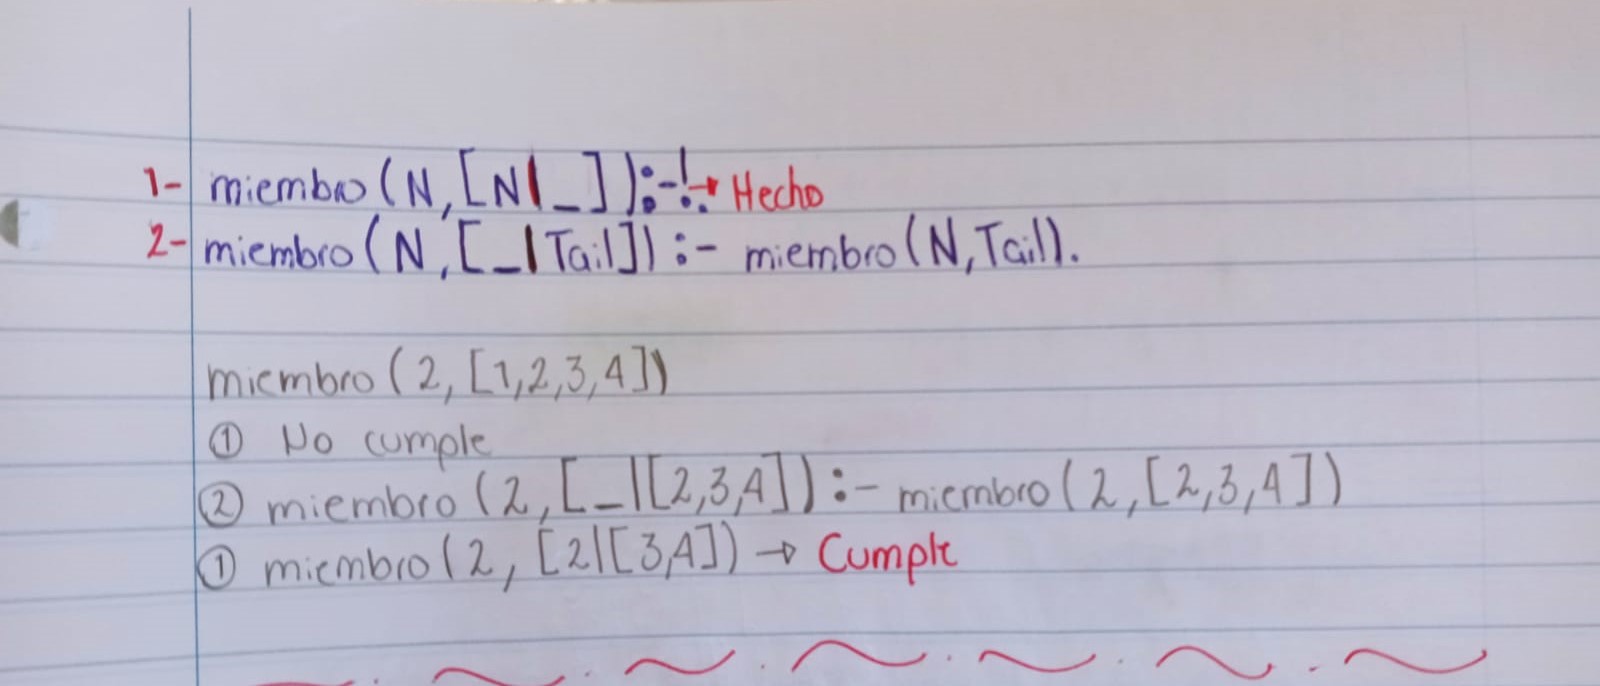 1- miembro(N,[N|_]):-!. → Hecho
2- miembro(N,[_|Tail]) :- miembro(N,Tail).
miembro(2,[1,2,3,4])
① No cumple
② miembro(2,[_|[2,3,4]) :- miembro(2,[2,3,4])
① miembro(2,[2|[3,4]) → Cumple